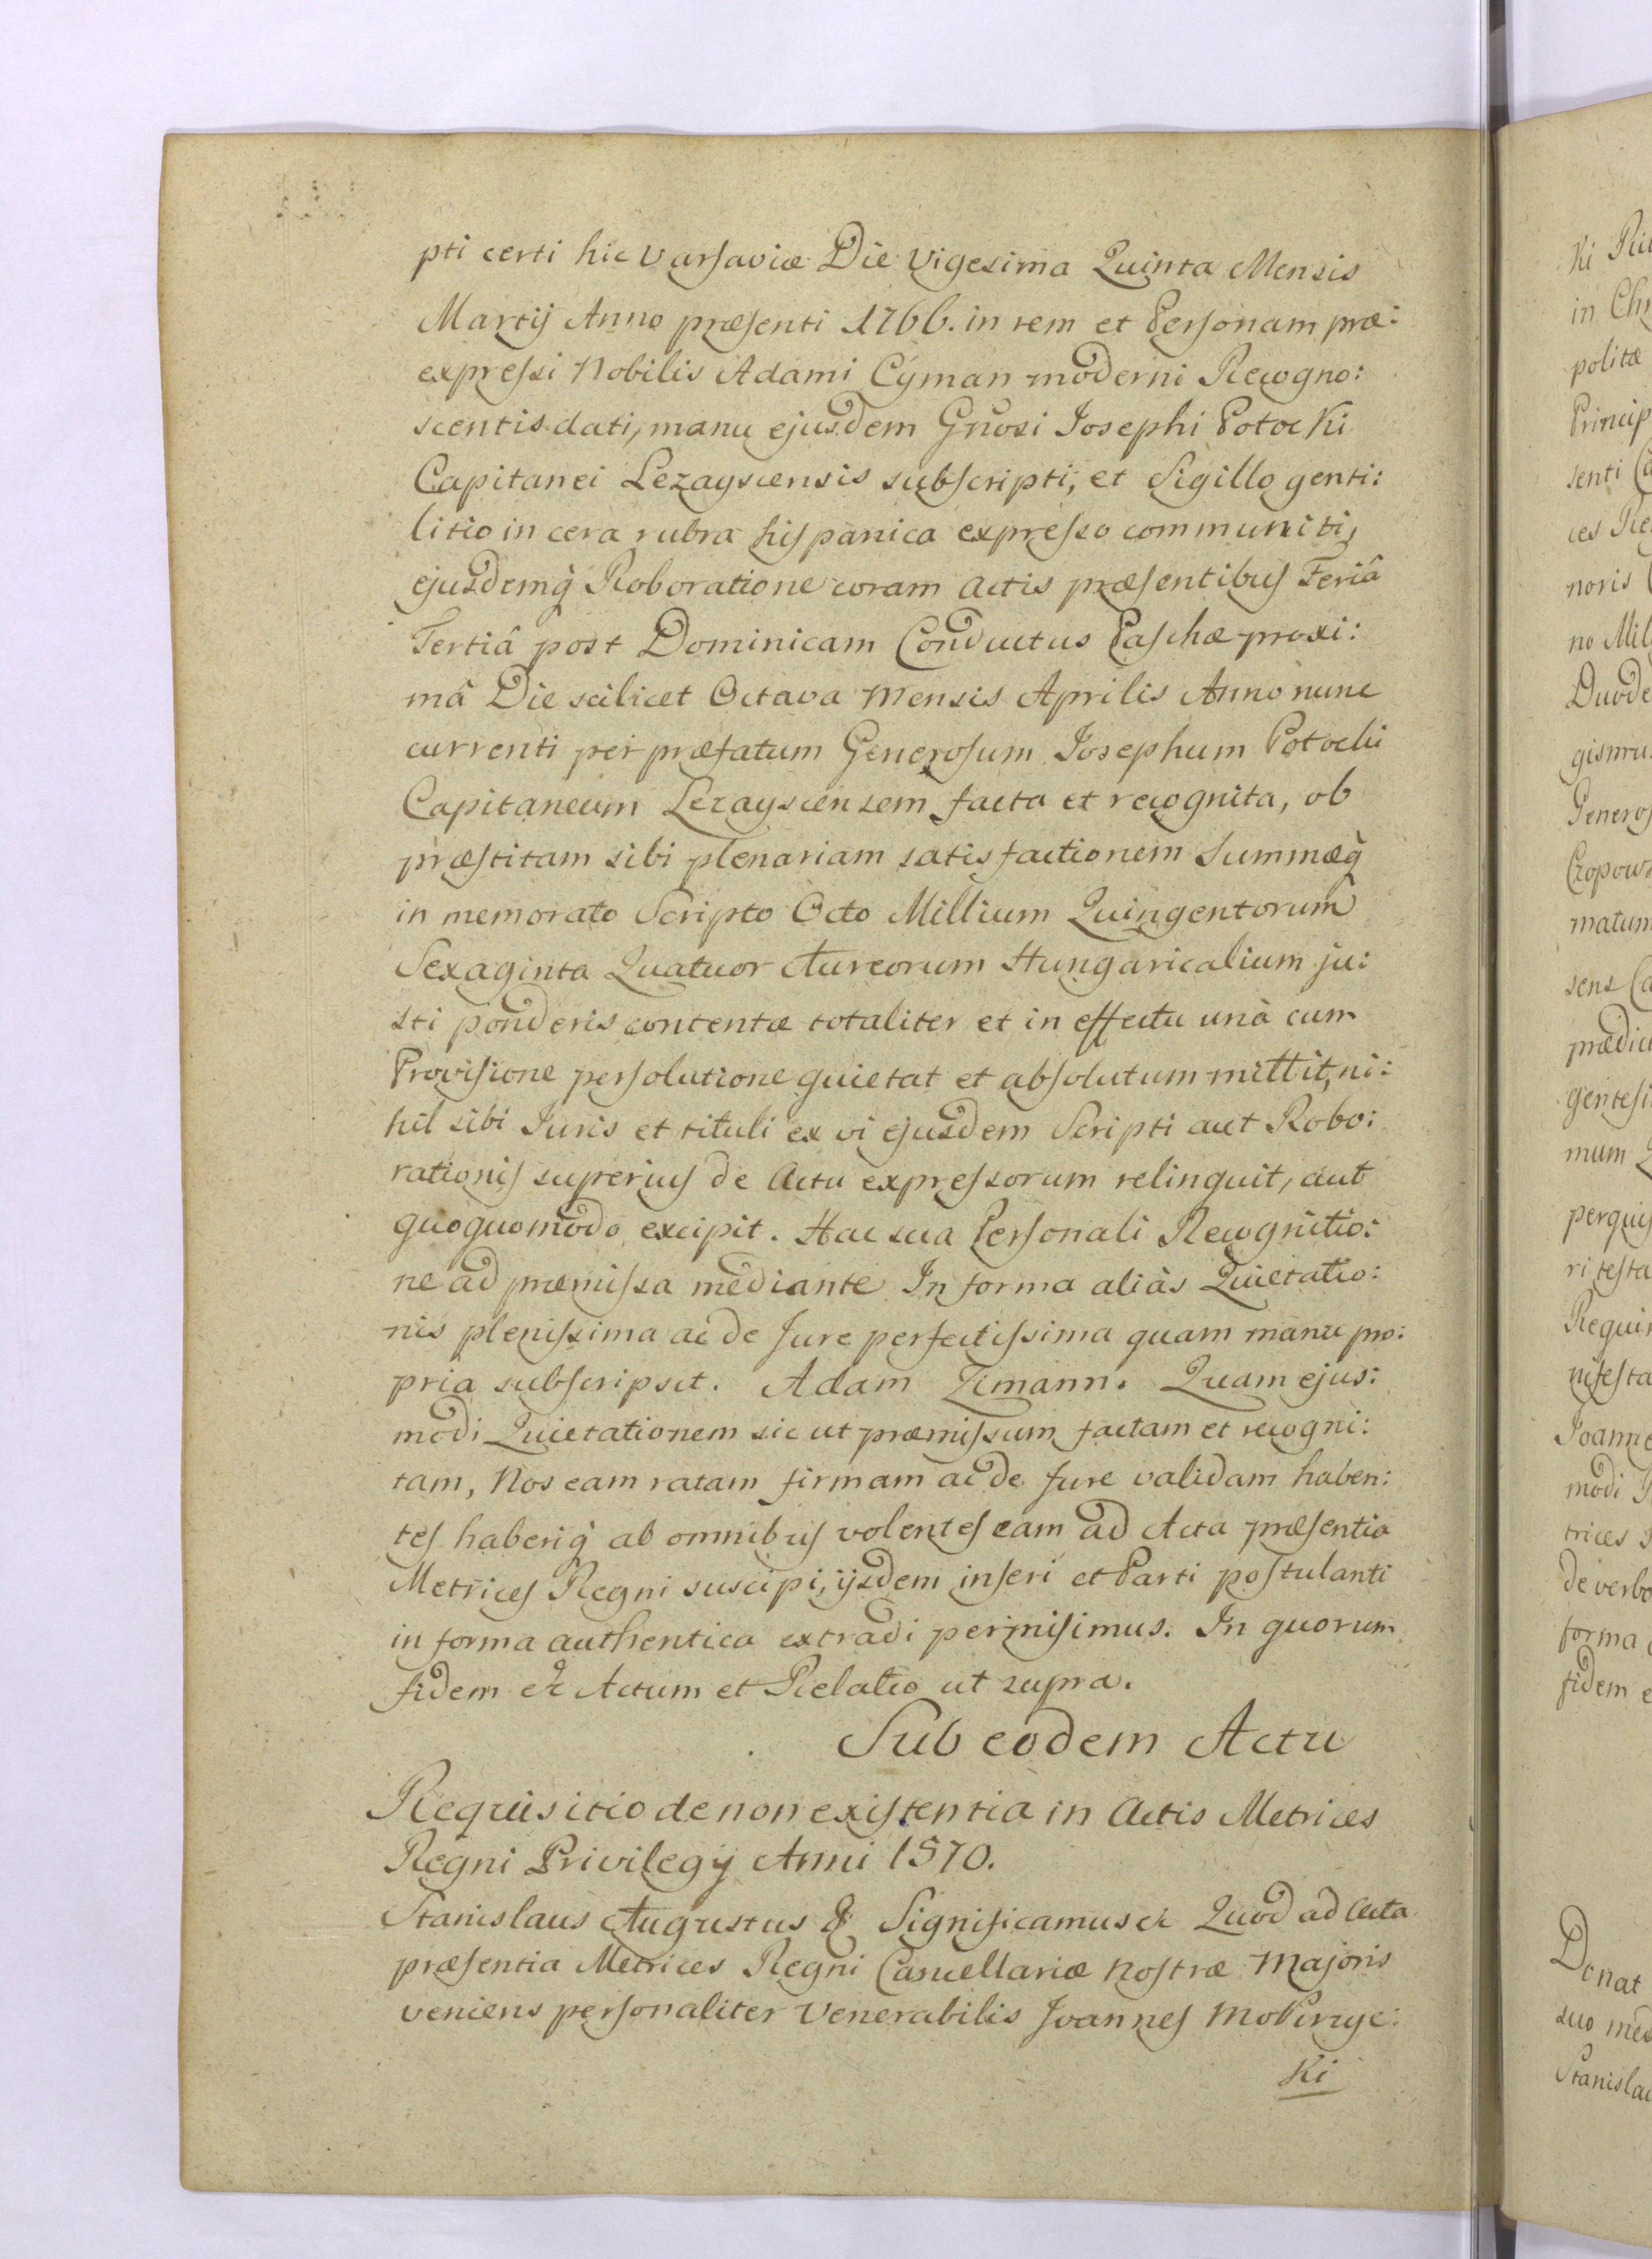 pti certi hic Varsaviæ Die Vigesima Quinta Mensis
Martij Anno præsenti 1766. in rem et Personam præ:
expressi Nobilis Adami Cyman moderni Recogno:
scentis dati, manu ejusdem Gnosi Josephi Potocki
Capitanei Lezayscensis subscripti, et Sigillo genti:
litio in cera rubra hispanica expresso communiti,
ejusdemq̀ Roboratione coram Actis præsentibus Feriâ
Tertiâ post Dominicam Conductus Paschæ proxi:
mâ Die scilicet Octava Mensis Aprilis Anno nunc
currenti per præfatum Generosum Josephum Potocki
Capitaneum Lezayscensem facta et recognita, ob
præstitam sibi plenariam satisfactionem Summæq̀
in memorato Scripto Octo Millium Quingentorum
Sexaginta Quatuor Aureorum Hungaricalium ju:
sti ponderis contentæ totaliter et in effectu unà cum
Provisione persolutione quietat et absolutum mittit, ni:
hil sibi Juris et tituli ex vi ejusdem Scripti aut Robo:
rationis superius de Actu expressorum relinquit, aut
quoquomodo excipit. Hac sua Personali Recognitio:
ne ad præmissa mediante In forma aliàs Quietatio:
nis plenissima ac de Jure perfectissima quam manu pro:
pria subscripsit. Adam Zimann. Quam ejus:
modi Quietationem sic ut præmissum factam et recogni:
tam, Nos eam ratam firmam ac de Jure validam haben:
tes haberiq̀ ab omnibus volentes eam ad Acta præsentia
Metrices Regni suscipi, ijsdem inseri et Parti postulanti
in forma authentica extradi permisimus. In quorum
fidem &c Actum et Relatio ut supra.
Sub eodem Actu
Requisitio de non existentia in Actis Metrices
Regni Privilegij Anni 1570.
Stanislaus Augustus & Significamus &c Quod ad Acta
præsentia Metrices Regni Cancellariæ Nostræ Majoris
veniens personaliter Venerabilis Joannes
Ki
in
politæ
Princip
senti
noris
no
gismu
Generos
matum
sens
gentesi
mum
perquis
ri testa
Requir
nifesta
Joanne
modi
trices
de verbo
forma
fidem
Donat
suo med
Stanislau